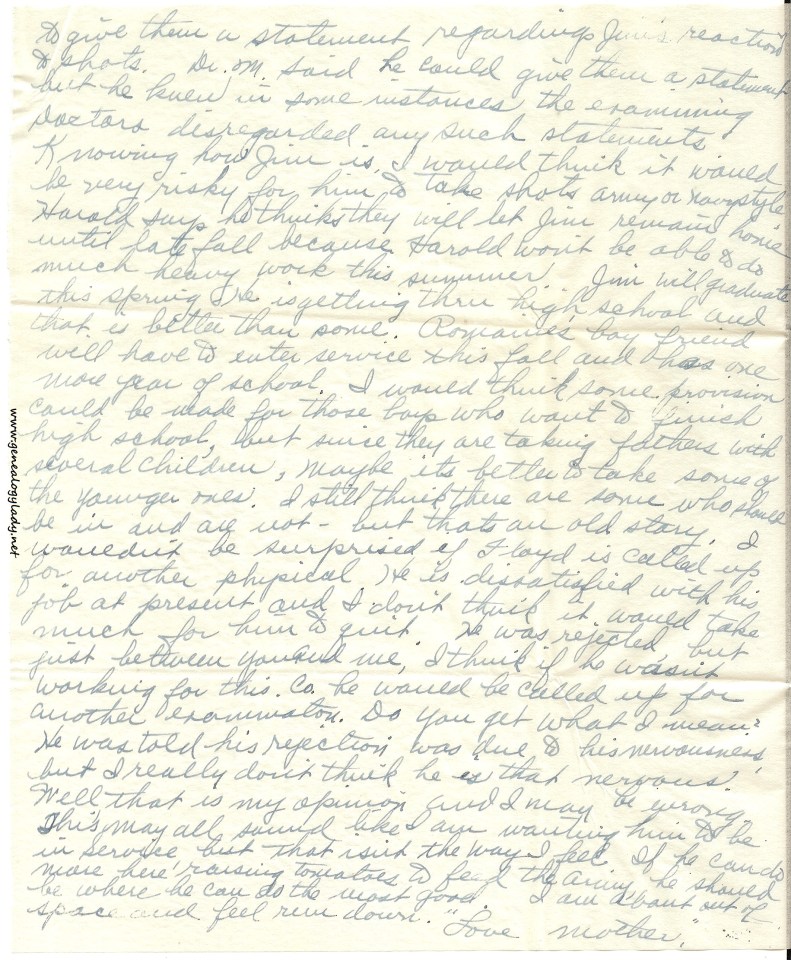 to give them a statement regarding Jim's reaction
to shots. Dr. M. said he could give them a statement
but he knew in some instances the examining
Doctors disregarded any such statements
Knowing how Jim is, I would think it would
be very risky for him to take shots army or navy style
Harold says he thinks they will let Jim remain home
until late fall because Harold won't be able to do
much heavy work this summer. Jim will graduate
this spring. He is getting thru high school and
that is better than some. Romaine's boy friend
will have to enter service this fall and has one
more year of school. I would think some provision
could be made for those boys who want to finish
high school, but since they are taking fathers with
several children, maybe it's better to take some of
the younger ones. I still think there are some who should
be in and are not - but that's an old story. I
wouldn't be surprised if Floyd is called up
for another physical. He is dissatisfied with his
job at present and I don't think it would take
much for him to quit. He was rejected, but
just between you and me, I think if he wasn't
working for this Co. he would be called up for
another examinaton. Do you get what I mean?
He was told his rejection was due to his nervousness,
but I really don't think he is that nervous.
Well that is my opinion and I may be wrong.
This may all sound like I am wanting him to be
in service but that isn't the way I feel. If he can do
more here raising tomatoes to feed the army he should
be where he can do the most good. I am about out of
space and feel run down. "Love mother."
www.genealogylady.net